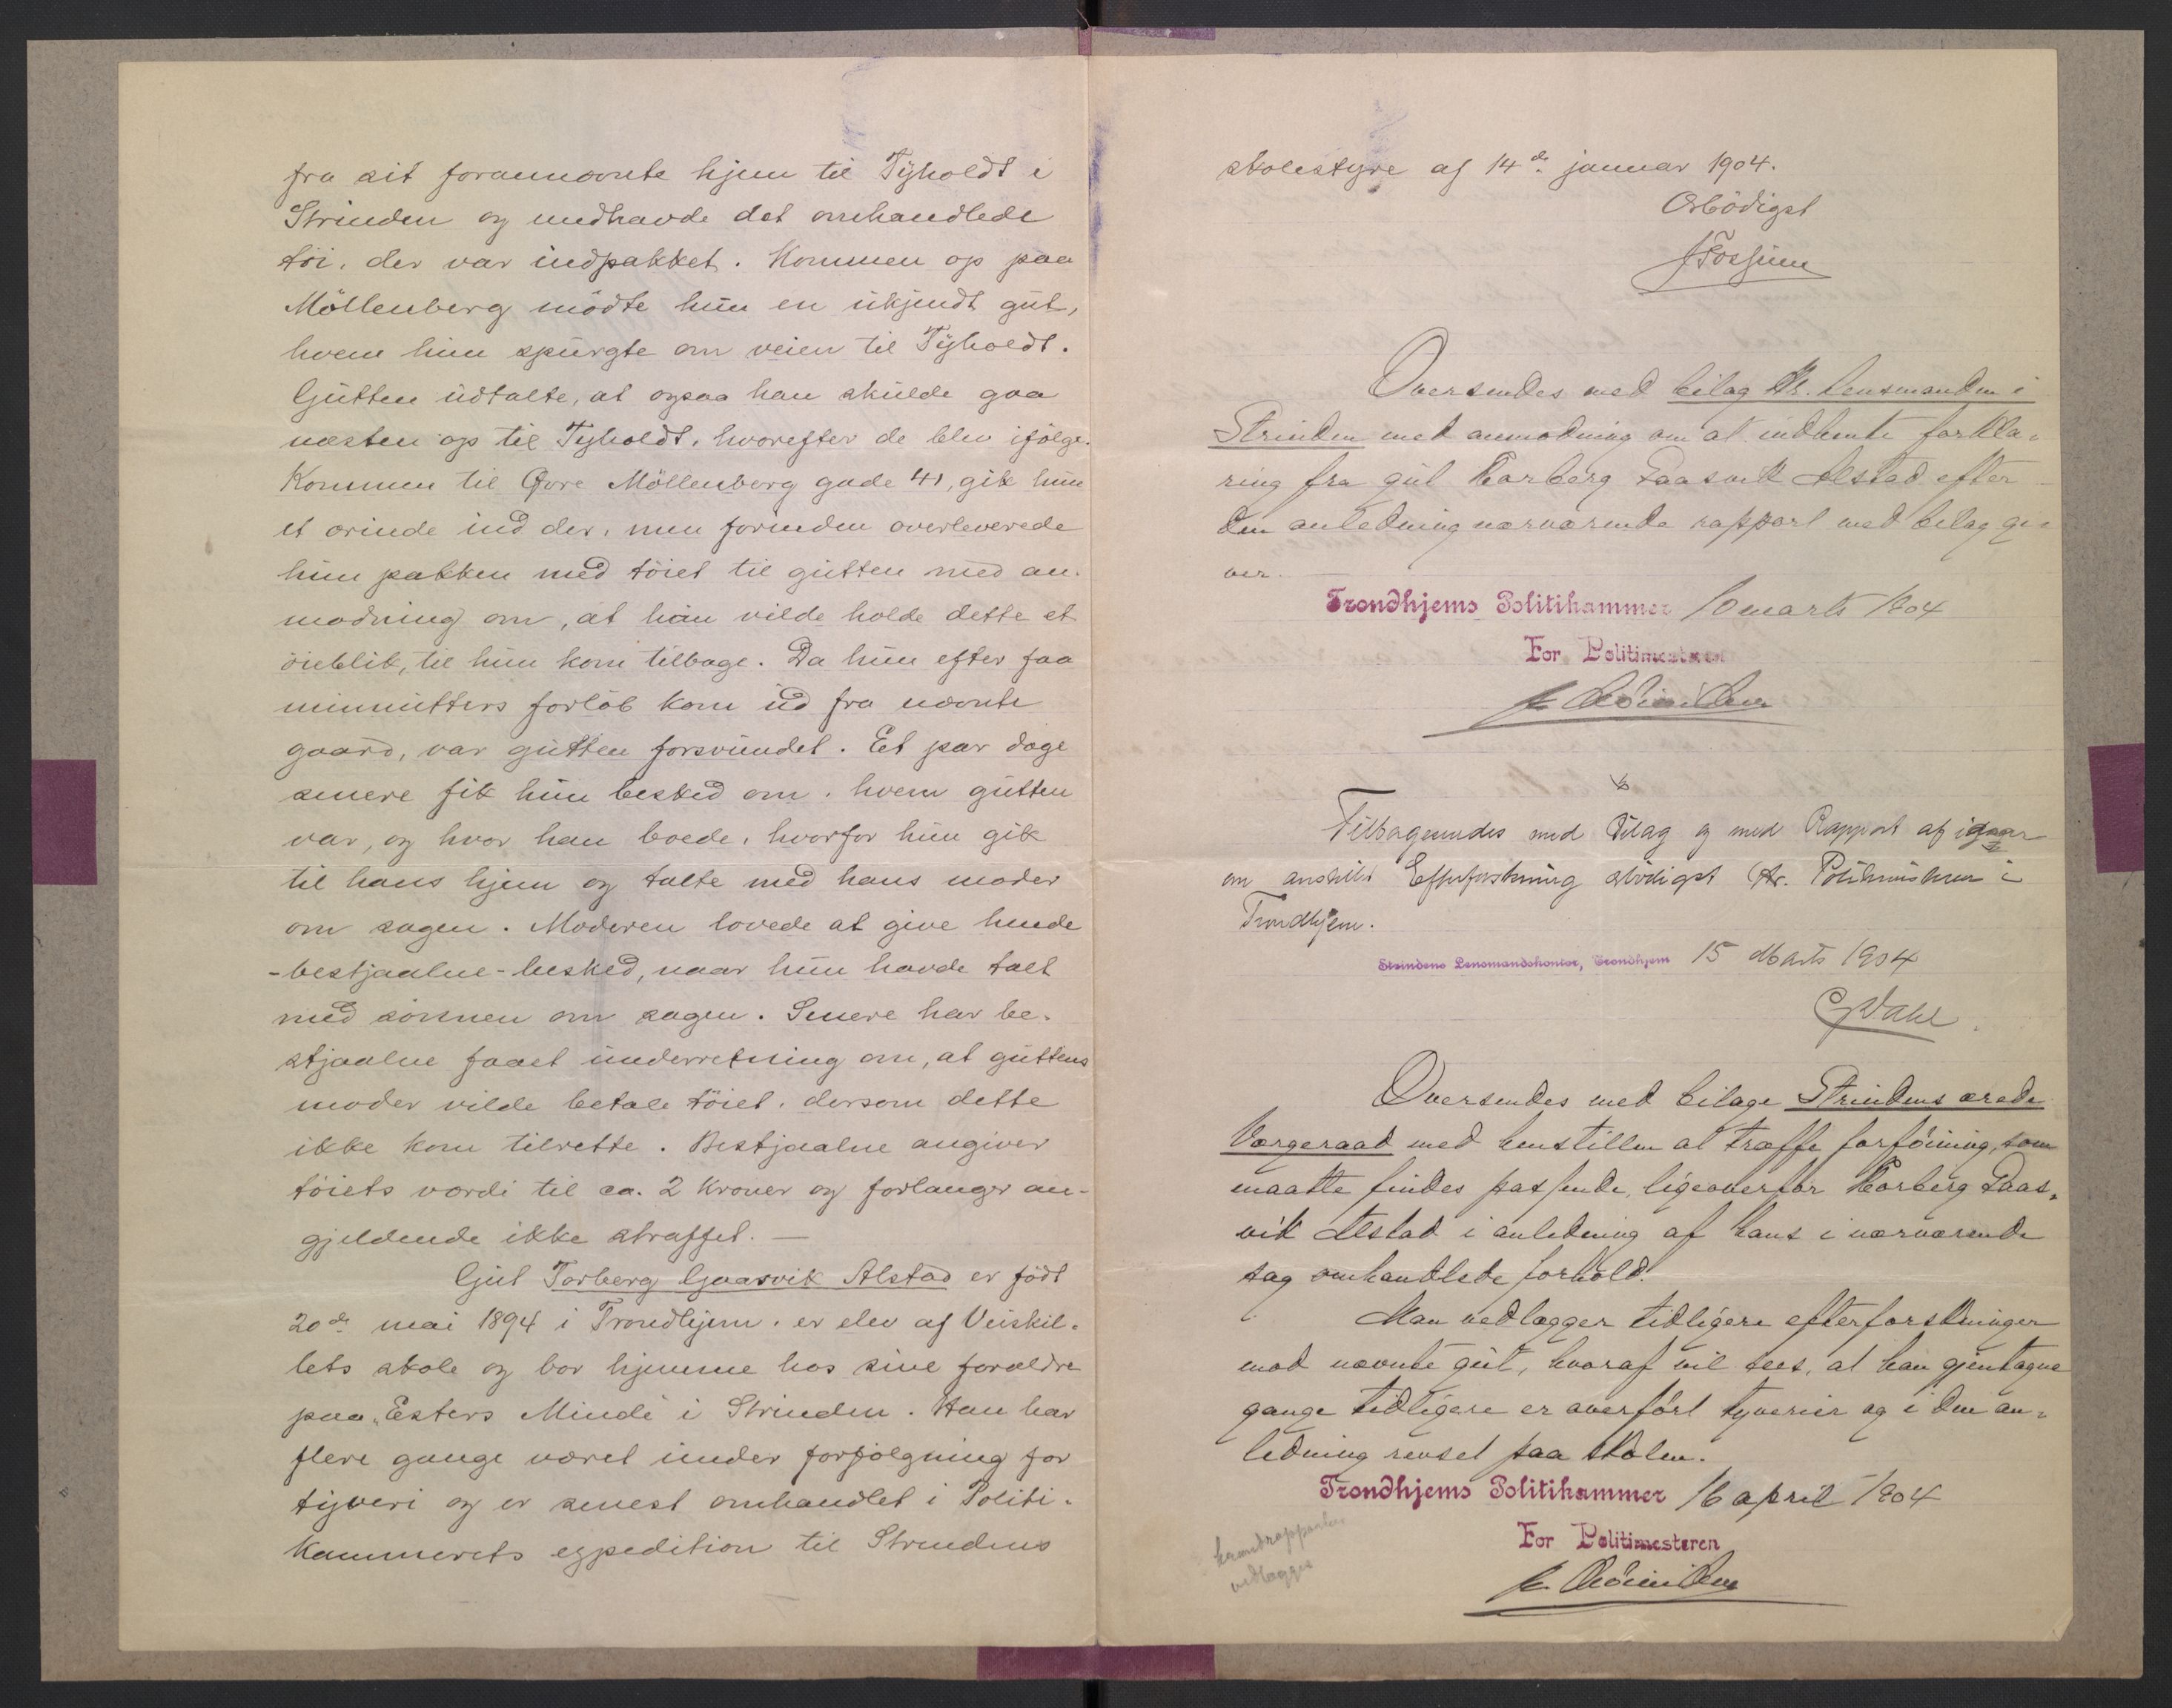 fra sit forannævnte hjem til Tyholdt i
Strinden og medhavde det omhandlede
töi, der var indpakket. Kommen op paa
Möllenberg mödte hun en ukjendt gut,
hvem hun spurgte om veien til Tyholdt.
Gutten udtalte, at ogsaa han skulde gaa
næsten op til Tyholdt, hvorefter de blev ifölge.
Kommen til Övre Möllenberg gade 41, gik hun
et ærinde ind der, men forinden overleverede
hun pakken med töiet til gutten med an-
modning om, at han vilde holde dette et
öieblik, til hun kom tilbage. Da hun efter faa
minnutters forlöb kom ud fra nævnte
gaard, var gutten forsvundet. Et par dage
senere fik hun besked om, hvem gutten
var, og hvor han boede, hvorfor hun gik
til hans hjem og talte med hans moder
om sagen. Moderen lovede at give hende
-bestjaalne- besked, naar hun havde talt
med sönnen om sagen. Senere har be-
stjaalne faaet underretning om, at guttens
moder vilde betale töiet, dersom dette
ikke kom tilrette. Bestjaalne angiver
töiets værdi til ca. 2 kroner og forlanger an-
gjeldende ikke straffet. —
Gut Torberg Gaasvik Alstad er födt
20de mai 1894 i Trondhjem, er elev af Veiskil-
lets skole og bor hjemme hos sine forældre
paa „Esters Minde i Strinden. Han har
flere gange været under forfölgning for
tyveri og er senest omhandlet i Politi-
kammerets expedition til Strindens
skolestyre af 14de januar 1904.
Örbödigst
J Fossum
Oversendes med bilag Hr. Lensmanden i
Strinden med anmodning om at indhente forkla-
ring fra gut Torberg Gaasvik Alstad efter
den anledning nærværende rapport med bilag gi-
ver.
Trondhjems Politikammer 10 marts 1904
For Politimesteren
Tilbagesendes med Bilag og med Rapport af igaar
om anstillet Efterforskning ærbödigst Hr. Politimesteren i
Trondhjem.
Strindens Lensmandskontor, Trondhjem 15 Marts 1904
Dahl
Oversendes med bilage Strindens ærede
Værgeraad med henstillen at træffe forföining, som
maatte findes passende, ligeoverfor Torberg Gaas-
vik Alstad i anledning af hans i nærværende
sag omhandlede forhold.
Man vedlægger tidligere efterforskninger
mod nævnte gut, hvoraf vil sees, at han gjentagne
gange tidligere er overfört tyverier og i den an-
ledning revset paa skolen.
Trondhjems Politikammer 16 april 1904
For Politimesteren
vedlægges